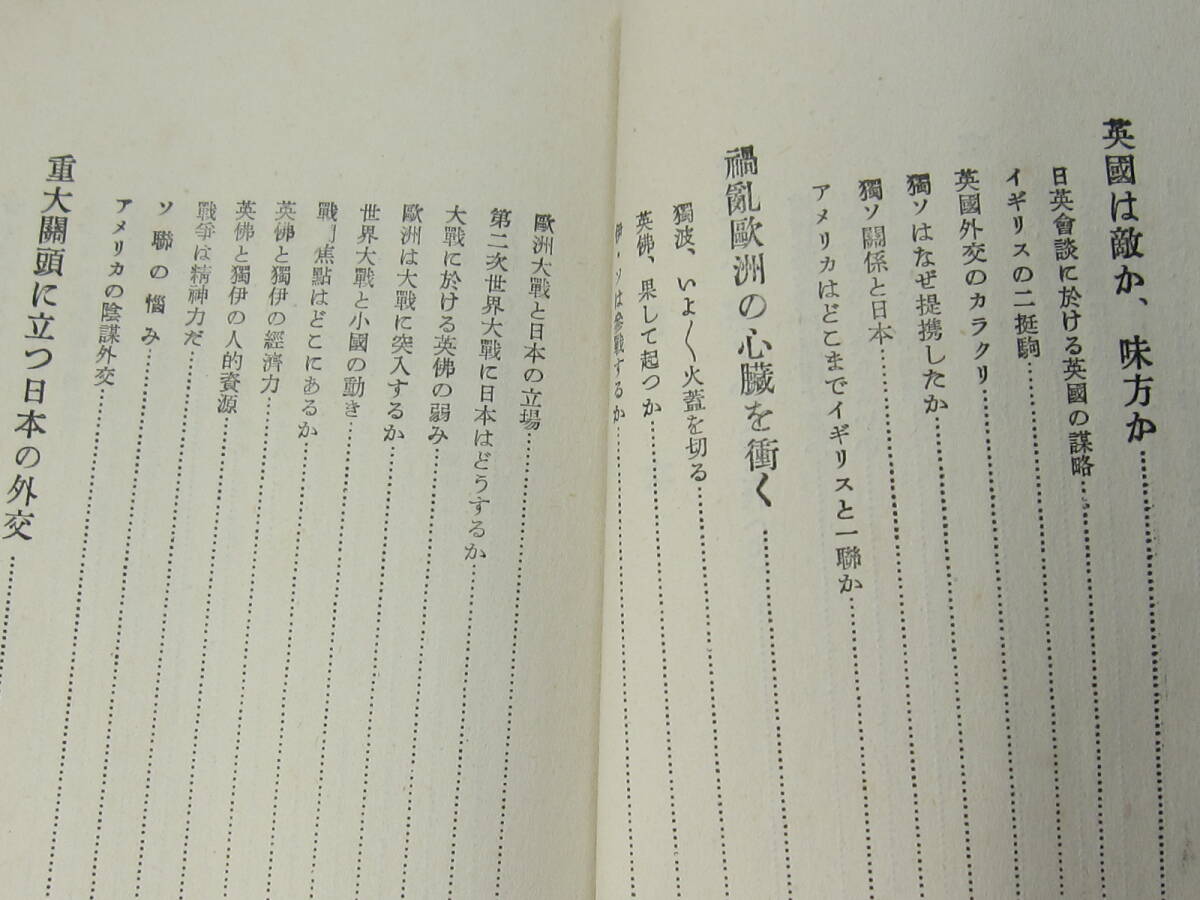 英國は敵か、味方か
日英會談に於ける英國の謀略
イギリスの二挺駒
英國外交のカラクリ
獨ソはなぜ提携したか
獨ソ關係と日本
アメリカはどこまでイギリスと一聯か
禍亂歐洲の心臟を衝く
獨波、いよ〱火蓋を切る
英佛、果して起つか
伊・ソは參戰するか
歐洲大戰と日本の立場
第二次世界大戰に日本はどうするか
大戰に於ける英佛の弱み
歐洲は大戰に突入するか
世界大戰と小國の動き
戰爭焦點はどこにあるか
英佛と獨伊の經濟力
英佛と獨伊の人的資源
戰爭は精神力だ
ソ聯の惱み
アメリカの陰謀外交
重大關頭に立つ日本の外交